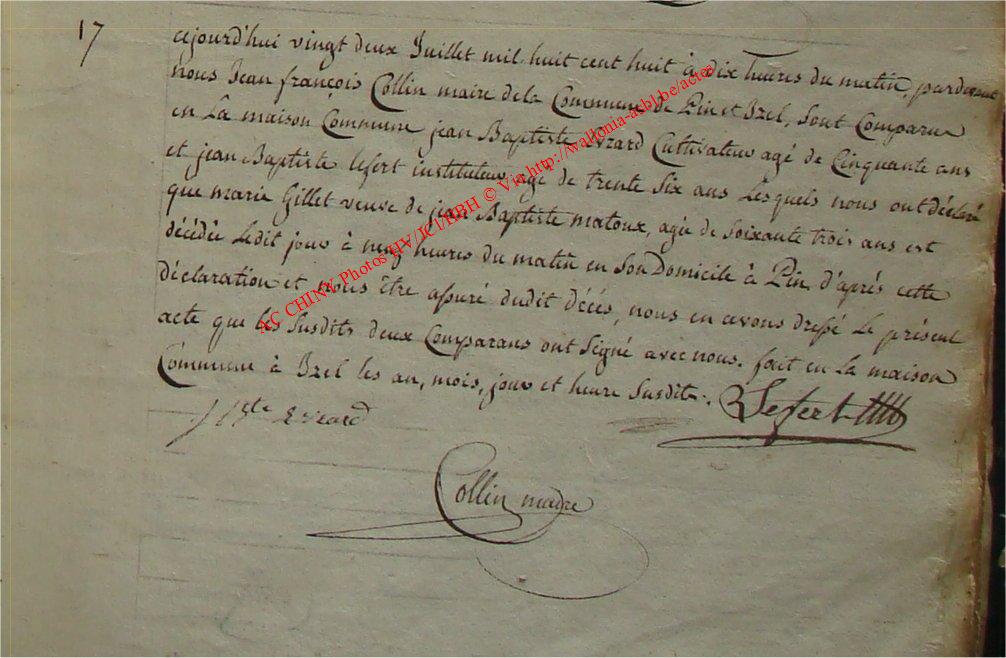 17
cejourd'hui vingt deux Juillet mil huit cent huit à dix heures du matin, pardevant
nous Jean françois Collin maire de la Commune de Pin et Izel, sont Comparu
en La maison Commune jean Baptiste Evrard Cultivateur agé de Cinquante ans
et jean Baptiste lefert instituteur agé de trente Six ans Lesquels nous ont déclaré
que marie Gillet veuve de jean Baptiste matoux, agée de Soixante trois ans est
décédée Ledit jour à neuf heures du matin en Son Domicile à Pin, d'après cette
déclaration et nous être assuré dudit décés, nous en avons dressé Le présent
acte que les Susdits deux Comparans ont Signé avec nous. fait en La maison
Commune à Izel les an, mois, jour et heure Susdits.
Lefert
Evrard
Collin maire
AC CHINY Photos HV/JCl/HBH © Via http://wallonia-asbl.be/actes